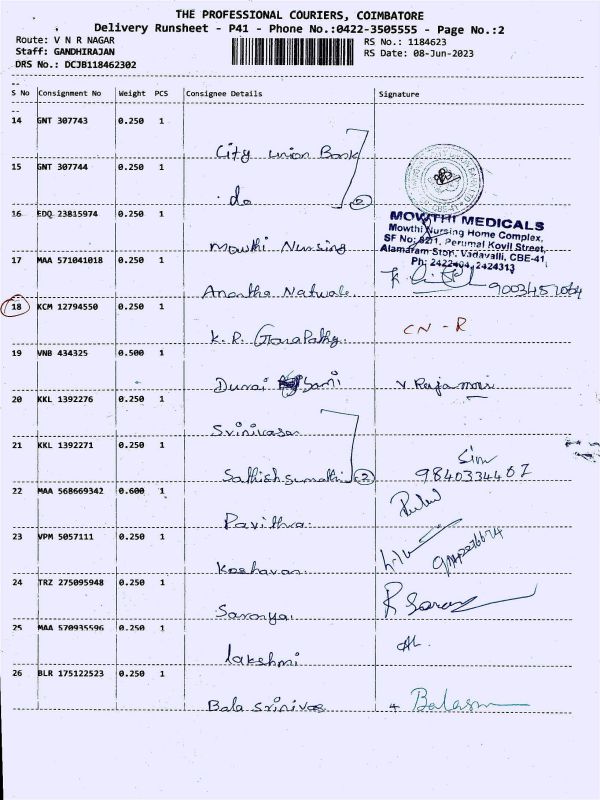 THE PROFESSIONAL COURIERS, COIMBATORE
Delivery Runsheet - P41 - Phone No.:0422-3505555 - Page No.:2
Route: V N R NAGAR
RS No.: 1184623
Staff: GANDHIRAJAN
RS Date: 08-Jun-2023
DRS No.: DCJB118462302
S No Consignment No Weight PCS Consignee Details Signature
14 GNT 307743 0.250 1
City Union Bank
15 GNT 307744 0.250 1
do
16 EDQ 23815974 0.250 1
MOWTHI MEDICALS
Mowthi Nursing Home Complex,
SF No: 82/1, Perumal Kovil Street,
Alamaram Stop, Vadavalli, CBE-41
Ph: 2422404, 2424313
Mowthi Nursing
17 MAA 571041018 0.250 1
18 KCM 12794550 0.250 1
CN - R
K. R. Ganapathy
19 VNB 434325 0.500 1
Durai
V Rajamani
20 KKL 1392276 0.250 1
Srinivasan
21 KKL 1392271 0.250 1
Sathish Sumathi 2
22 MAA 568669342 0.600 1
Pavithra
23 VPM 5057111 0.250 1
Keshavan
24 TRZ 275095948 0.250 1
Saranya
25 MAA 570935596 0.250 1
lakshmi
26 BLR 175122523 0.250 1
Bala Srinivas